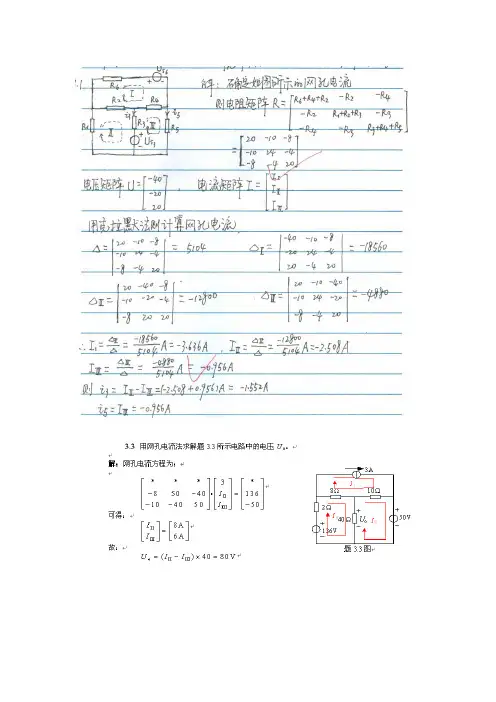 解: 确定如图所示的网孔电流
R6 US6
R2 I R4
R1 II R3 III R5
i3 i5
US3
则电阻矩阵R= [ R6+R4+R2 -R2 -R4
-R2 R1+R2+R3 -R3
-R4 -R3 R3+R4+R5 ]
= [ 20 -10 -8
-10 24 -4
-8 -4 20 ]
电压矩阵U= [ -40 -20 20 ], 电流矩阵I= [ II III ]
用克拉默法则计算网孔电流
Δ= | 20 -10 -8
-10 24 -4
-8 -4 20 | = 5104
ΔI= | -40 -10 -8
-20 24 -4
20 -4 20 | = -18560
ΔII= | 20 -40 -8
-10 -20 -4
-8 20 20 | = -12800
ΔIII= | 20 -10 -40
-10 24 -20
-8 -4 20 | = -4880
∴ I₁= ΔI/Δ = -18560/5104 A=-3.636A, III= ΔII/Δ = -12800/5104 A=-2.508A
IIII= ΔIII/Δ = -4880/5104 A= -0.956A
则 i3 = III-IIII=(-2.508+0.956)A = -1.552A
i5=IIII=-0.956A
3.3 用网孔电流法求解题 3.3 所示电路中的电压 Uo。
解：网孔电流方程为：
[ * * *
-8 50 -40
-10 -40 50 ] · [ 3 III IIII ] = [ * 136 -50 ]
可得：
[ III IIII ] = [ 8A 6A ]
故：
Uo = (III − IIII) × 40 = 80V
3A
8Ω 10Ω
2Ω
136V
40Ω Uo
50V
题 3.3 图